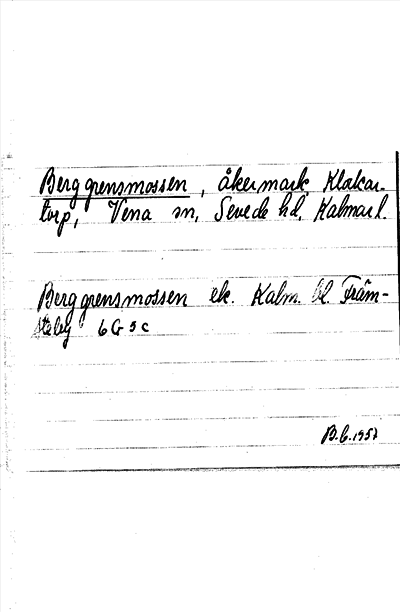 Berggrensmossen, åkermark, Klockar-
torp, Vena sn, Sevede hd, Kalmar l.
Berggrensmossen ek. Kalm. bl.
6 G 5 c
B.G. 1957